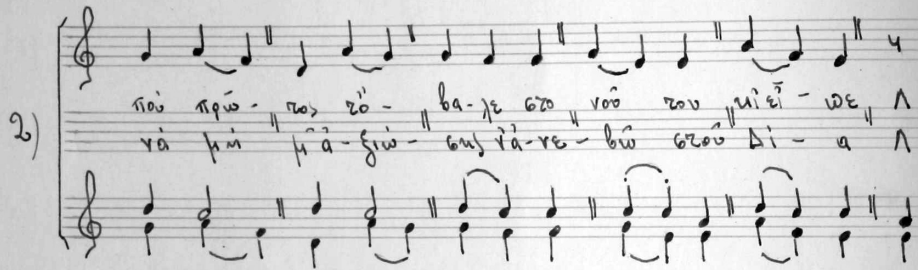 2)
ποὺ πρῶ - τος τὄ - βα - λε στο νοῦ του κι' εἶ - πε Λ
νὰ μὴ μ' ἀ - ξιώ - σης ν' ἀ - νε - βῶ στοῦ Δί - α Λ